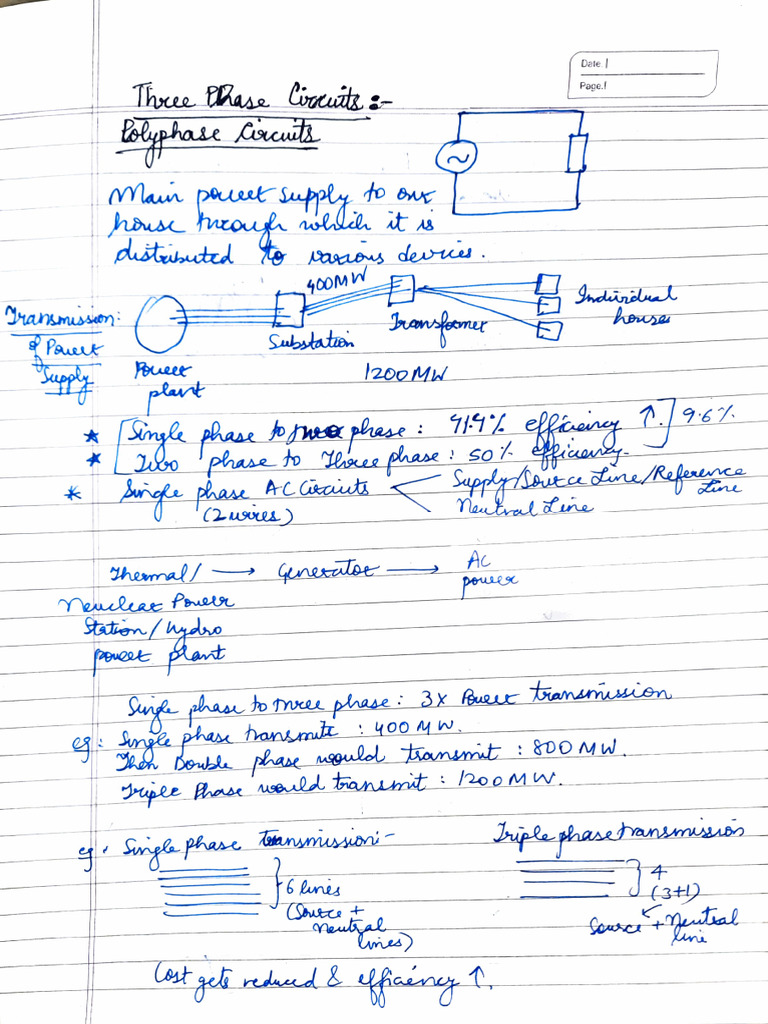 Date.
Page.
Three Phase Circuits:-
Polyphase Circuits
Main power supply to our
house through which it is
distributed to various devices.
400MW
Transmission:
of Power
Supply
Power
plant
Substation
Transformer
Individual
houses
1200MW
* Single phase to two phase : 41.4% efficiency ↑. 9.6%
* Two phase to Three phase : 50% efficiency.
* Single phase AC Circuits
(2 wires)
Supply/Source Line/Reference
Line
Neutral Line
Thermal/ → Generator → AC
power
Neuclear Power
Station/Hydro
power plant
Single phase to three phase : 3x Power transmission
eg : Single phase transmits : 400MW.
Then Double phase would transmit : 800MW.
Triple Phase would transmit : 1200MW.
eg . Single phase transmission:-
6 lines
(Source +
neutral
lines)
Triple phase transmission
4
(3+1)
Source + Neutral
line
Cost gets reduced & efficiency ↑.